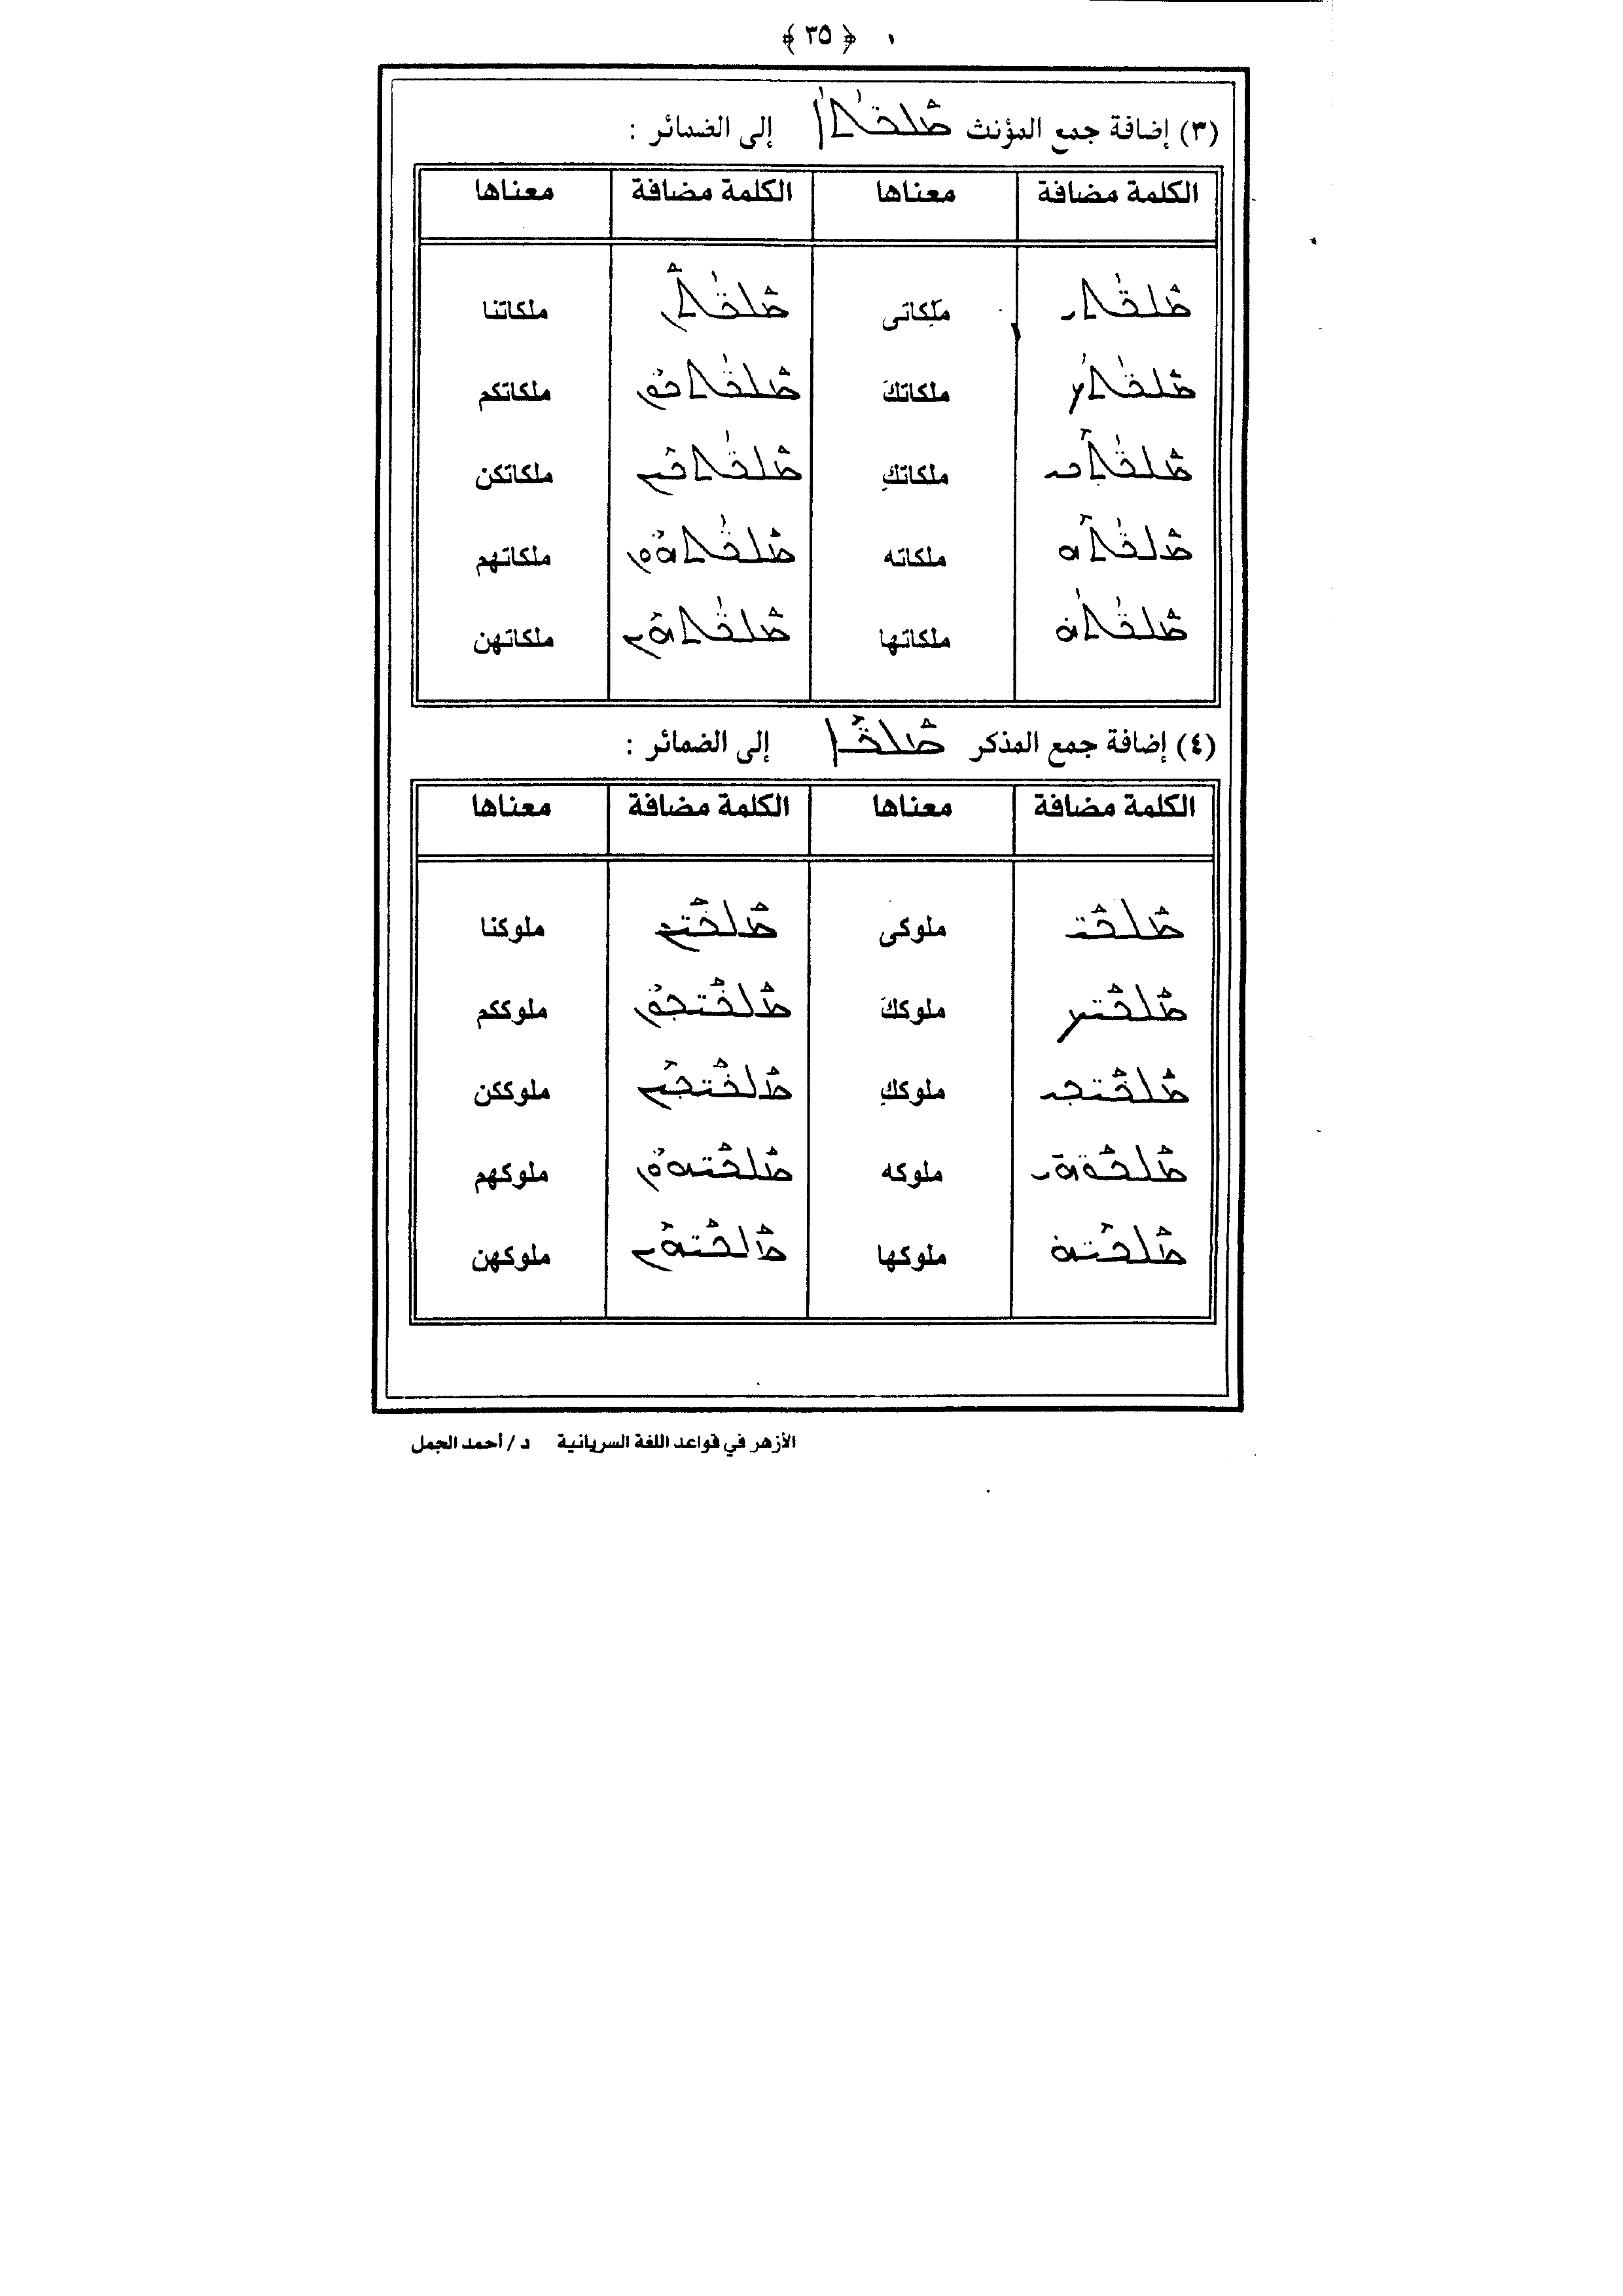 ﴿ ٣٥ ﴾
(٣) إضافة جمع المؤنث ܡܰܠܟ̈ܳܬܳܐ إلى الضمائر :
الكلمة مضافة معناها الكلمة مضافة معناها
ܡܰܠܟ̈ܳܬܝ ملكاتى ܡܰܠܟ̈ܳܬܰܢ ملكاتنا
ܡܰܠܟ̈ܳܬܳܟ ملكاتكَ ܡܰܠܟ̈ܳܬܟܽܘܢ ملكاتكم
ܡܰܠܟ̈ܳܬܶܟܝ ملكاتكِ ܡܰܠܟ̈ܳܬܟܶܝܢ ملكاتكن
ܡܰܠܟ̈ܳܬܶܗ ملكاته ܡܰܠܟ̈ܳܬܗܽܘܢ ملكاتهم
ܡܰܠܟ̈ܳܬܳܗ̇ ملكاتها ܡܰܠܟ̈ܳܬܗܶܝܢ ملكاتهن
(٤) إضافة جمع المذكر ܡܰܠܟ̈ܶܐ إلى الضمائر :
الكلمة مضافة معناها الكلمة مضافة معناها
ܡܰܠܟܰܝ̈ ملوكى ܡܰܠܟܰܝ̈ܢ ملوكنا
ܡܰܠܟܰܝ̈ܟ ملوككَ ܡܰܠܟܰܝ̈ܟܽܘܢ ملوككم
ܡܰܠܟܰܝ̈ܟܝ ملوككِ ܡܰܠܟܰܝ̈ܟܶܝܢ ملوككن
ܡܰܠܟܰܘ̈ܗܝ ملوكه ܡܰܠܟܰܝ̈ܗܽܘܢ ملوكهم
ܡܰܠܟܶܝ̈ܗ̇ ملوكها ܡܰܠܟܰܝ̈ܗܶܝܢ ملوكهن
الأزهر في قواعد اللغة السريانية د/أحمد الجمل